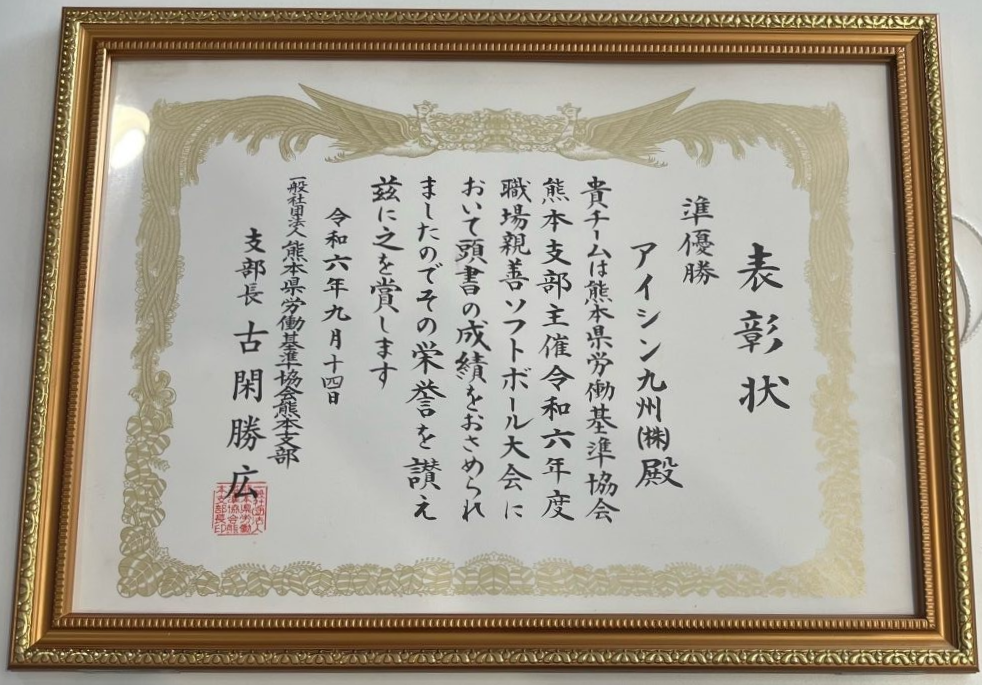 表彰状
準優勝
アイシン九州㈱殿
貴チームは熊本県労働基準協会
熊本支部主催令和六年度
職場親善ソフトボール大会に
おいて頭書の成績をおさめられ
ましたのでその栄誉を讃え
茲に之を賞します
令和六年九月十四日
一般社団法人熊本県労働基準協会熊本支部
支部長 古閑勝広